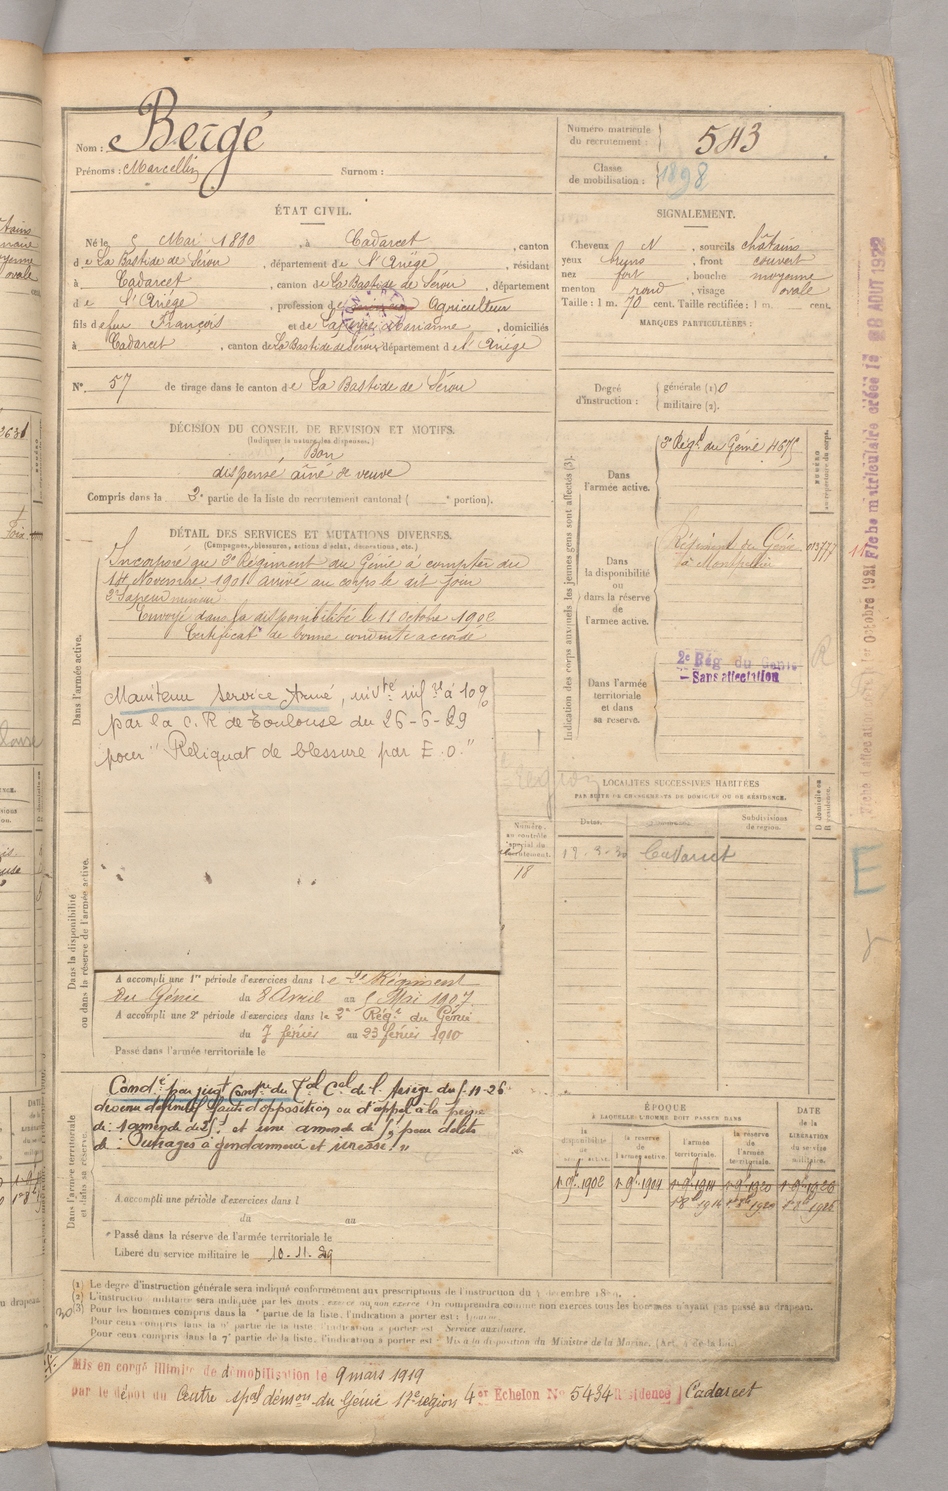 Nom : Bergé
Prénoms : Marcellin Surnom :
Numéro matricule du recrutement : 543
Classe de mobilisation : 1898
ÉTAT CIVIL.
Né le 5 Mai 1880, à Cadarcet, canton
de La Bastide de Sérou, département de l'Ariège, résidant
à Cadarcet, canton de La Bastide de Sérou, département
de l'Ariège, profession de Agriculteur
fils de feu François et de Marianne, domiciliés
à Cadarcet, canton de La Bastide de Sérou, département de l'Ariège
SIGNALEMENT.
Cheveux N, sourcils châtains
yeux bruns, front couvert
nez fort, bouche moyenne
menton rond, visage ovale
Taille : 1 m. 70 cent. Taille rectifiée : 1 m. cent.
MARQUES PARTICULIÈRES :
N° 57 de tirage dans le canton de La Bastide de Sérou
Degré d'instruction : générale (1) 0
militaire (2).
DÉCISION DU CONSEIL DE REVISION ET MOTIFS.
(Indiquer la nature des dispenses.)
Bon
dispensé aîné de veuve
Compris dans la 2e partie de la liste du recrutement cantonal ( e portion).
DÉTAIL DES SERVICES ET MUTATIONS DIVERSES.
(Campagnes, blessures, actions d'éclat, décorations, etc.)
Incorporé au 2e Régiment du Génie à compter du
14 Novembre 1901 arrivé au corps le dit jour
2e Sapeur mineur
Envoyé dans la disponibilité le 11 Octobre 1902
Certificat de bonne conduite accordé
Dans l'armée active.
Maintenu Service Armé, inv.té inf.re à 10%
par la C. R de Toulouse du 26-6-29
pour "Reliquat de blessure par E. O."
Dans la disponibilité ou dans la réserve de l'armée active.
A accompli une 1re période d'exercices dans le 2e Régiment
du Génie du 8 Avril au 5 Mai 1907
A accompli une 2e période d'exercices dans le 2e Régt du Génie
du 7 février au 23 février 1910
Passé dans l'armée territoriale le
Dans l'armée territoriale et dans sa réserve.
Condé par jugt du Cel de l'Ariège du 11-26
devenu définitif faute d'opposition ou d'appel à la peine
de 1 amende de et une amende de pour délits
de : Outrages à gendarmerie et ivresse."
A accompli une période d'exercices dans l
du au
Passé dans la réserve de l'armée territoriale le
Libéré du service militaire le 10.11.29
Indication des corps auxquels les jeunes gens sont affectés (3).
Dans l'armée active. 2e Régt du Génie
Dans la disponibilité ou dans la réserve de l'armée active.
Régiment du Génie
à Montpellier
Dans l'armée territoriale et dans sa réserve.
2e Rég du Génie
Sans affectation
LOCALITÉS SUCCESSIVES HABITÉES
PAR SUITE DE CHANGEMENTS DE DOMICILE OU DE RÉSIDENCE.
Dates. Communes. Subdivisions de région.
Cadarcet
Numéro au contrôle spécial du recrutement.
18
ÉPOQUE
À LAQUELLE L'HOMME DOIT PASSER DANS
DATE DE LA LIBÉRATION du service militaire.
la disponibilité de l'armée active. la réserve de l'armée active. l'armée territoriale. la réserve de l'armée territoriale.
1er 9bre 1902 1er 9bre 1904 1er 9bre 1914 1er 9bre 1920 1er 9bre 1926
(1) Le degré d'instruction générale sera indiqué conformément aux prescriptions de l'instruction du 4 décembre 1889.
(2) L'instruction militaire sera indiquée par les mots : exercé ou non exercé. On comprendra comme non exercés tous les hommes n'ayant pas passé au drapeau.
(3) Pour les hommes compris dans la partie de la liste, l'indication à porter est :
Pour ceux compris dans la partie de la liste l'indication à porter est Service auxiliaire.
Pour ceux compris dans la 7e partie de la liste, l'indication à porter est : Mis à la disposition du Ministre de la Marine.
Mis en congé illimité de démobilisation le 9 mars 1919
par le dépôt du Centre spal démon du Génie 17e région 4er Echelon No 5434 Résidence] Cadarcet